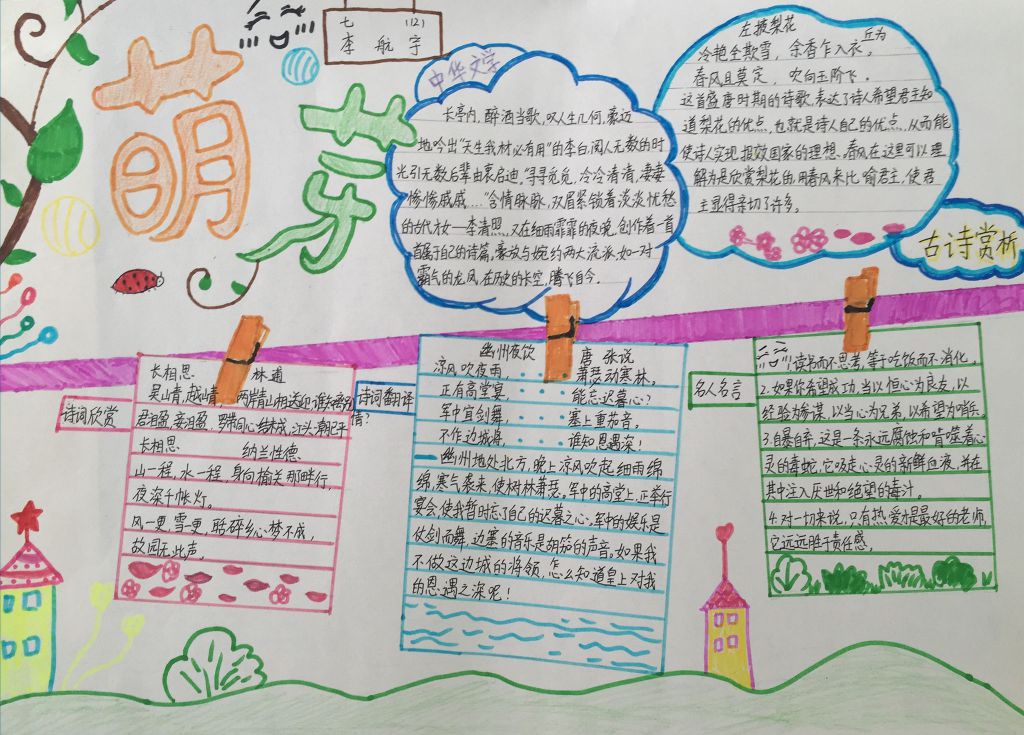 萌芽
七 (12)
李航宇
中华文学
长亭内,醉酒当歌,叹人生几何,豪迈
地吟出“天生我材必有用”的李白,阅人无数的时
光引无数后辈由衷启迪,“寻寻觅觅,冷冷清清,凄凄
惨惨戚戚……”含情脉脉,双眉紧锁着淡淡忧愁
的古代才女——李清照,又在细雨霏霏的夜晚,创作着一首
首属于自己的诗篇,豪放与婉约两大流派,如一对
霸气的龙凤,在历史的长空,腾飞至今。
左掖梨花
丘为
冷艳全欺雪,余香乍入衣,
春风且莫定,吹向玉阶飞。
这首盛唐时期的诗歌,表达了诗人希望君主知
道梨花的优点,也就是诗人自己的优点,从而能
使诗人实现报效国家的理想。春风在这里可以理
解为是欣赏梨花的,用春风来比喻君主,使君
主显得亲切了许多。
古诗赏析
诗词欣赏
长相思 林逋
吴山青,越山青,两岸青山相送迎,谁知离别情?
君泪盈,妾泪盈,罗带同心结未成,江头潮已平
长相思 纳兰性德
山一程,水一程,身向榆关那畔行,
夜深千帐灯。
风一更,雪一更,聒碎乡心梦不成,
故园无此声。
诗词翻译
幽州夜饮 唐 张说
凉风吹夜雨,萧瑟动寒林。
正有高堂宴,能忘迟暮心?
军中宜剑舞,塞上重笳音。
不作边城将,谁知恩遇深!
幽州地处北方,晚上凉风吹起,细雨绵
绵,寒气袭来,使树林萧瑟。军中的高堂上,正举行
宴会,使我暂时忘了自己的迟暮之心,军中的娱乐是
仗剑而舞,边塞的音乐是胡笳的声音,如果我
不做这边城的将领,怎么知道皇上对我
的恩遇之深呢!
名人名言
读书而不思考,等于吃饭而不消化。
2.如果你希望成功,当以恒心为良友,以
经验为参谋,以当心为兄弟,以希望为哨兵。
3.自暴自弃,这是一条永远腐蚀和啃噬着心
灵的毒蛇,它吸走心灵的新鲜血液,并在
其中注入厌世和绝望的毒汁。
4.对一切来说,只有热爱才是最好的老师,
它远远胜于责任感。